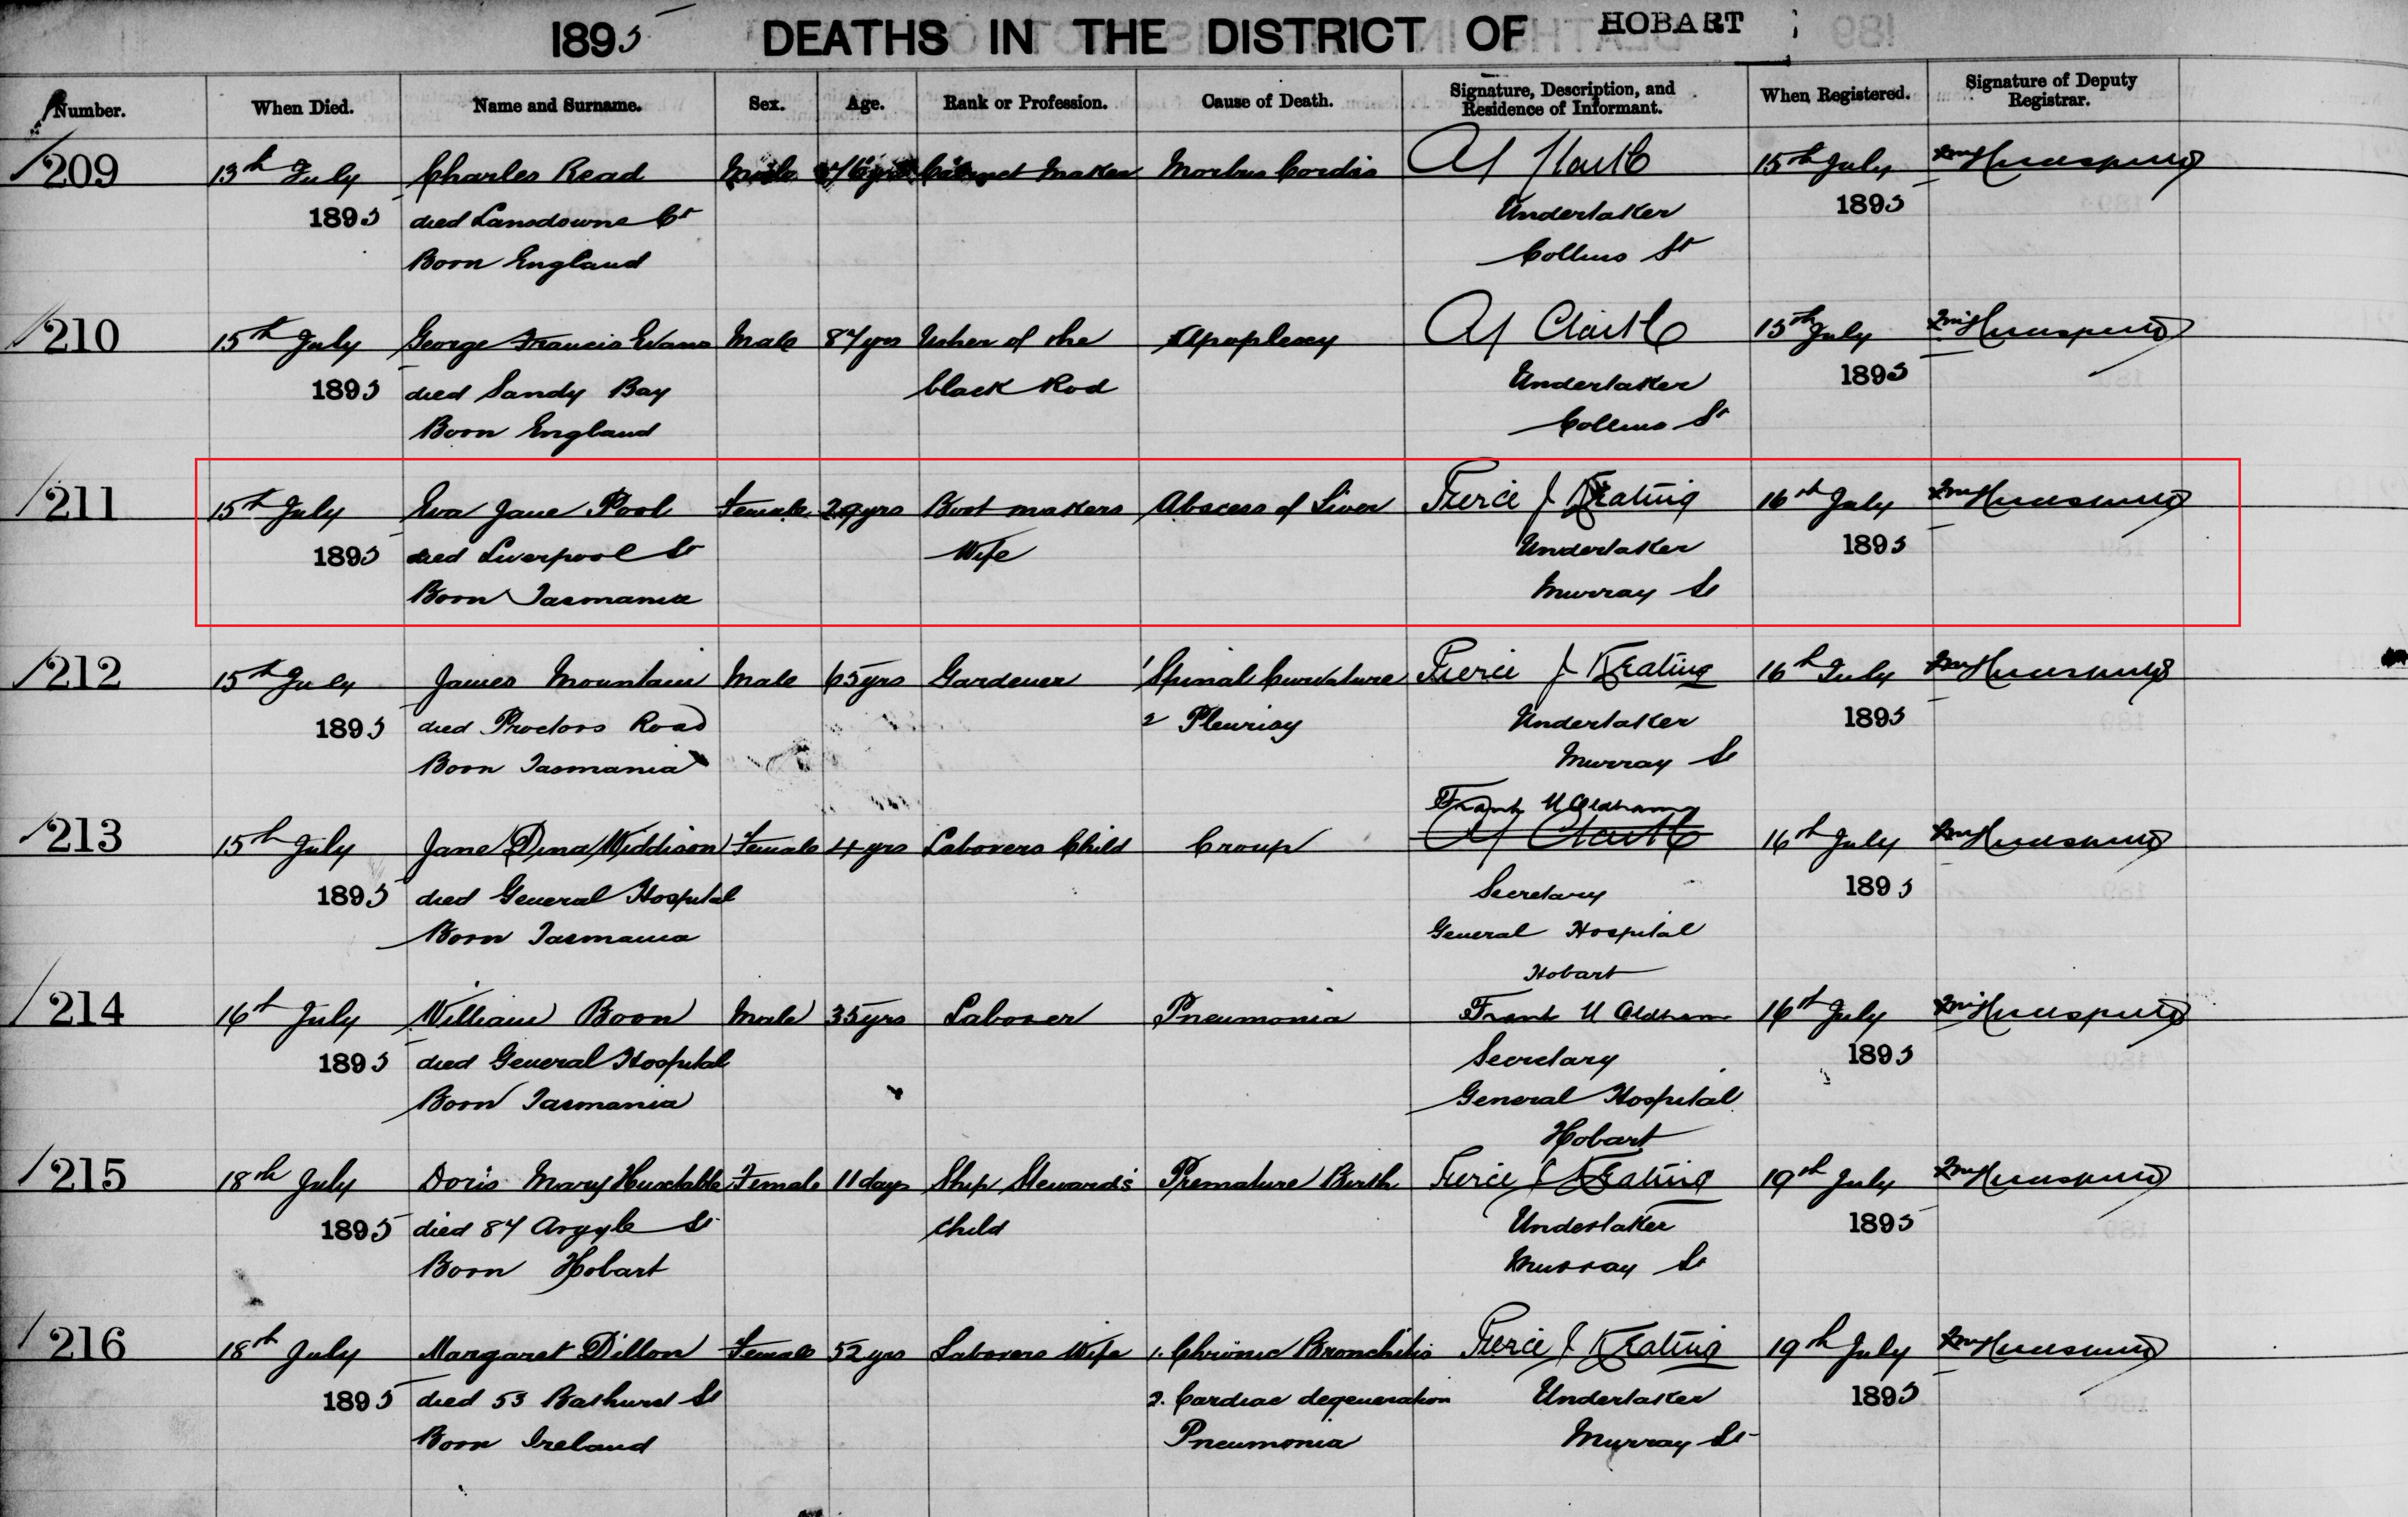 1895 DEATHS IN THE DISTRICT OF HOBART
Number. When Died. Name and Surname. Sex. Age. Rank or Profession. Cause of Death. Signature, Description, and Residence of Informant. When Registered. Signature of Deputy Registrar.
209 13th July Charles Read Male Cabinet Maker Morbus Cordis 15th July
1895 died Lansdowne Ct Undertaker 1895
Born England Collins St
210 15th July George Francis Evans Male 87 yrs Usher of the Apoplexy 15th July
1895 died Sandy Bay black Rod Undertaker 1895
Born England Collins St
211 15th July Eva Jane Pool Female 29 yrs Boot makers Abscess of Liver Pierce J Keating 16th July
1895 died Liverpool St Wife Undertaker 1895
Born Tasmania Murray St
212 15th July James Mountain Male 65 yrs Gardener 1 Spinal Curvature Pierce J Keating 16th July
1895 died Proctors Road 2 Pleurisy Undertaker 1895
Born Tasmania Murray St
Frank U Oldham
213 15th July Jane Dina Widdison Female 4 yrs Laborers Child Croup 16th July
1895 died General Hospital Secretary 1895
Born Tasmania General Hospital
Hobart
214 16th July William Boon Male 35 yrs Laborer Pneumonia Frank U Oldham 16th July
1895 died General Hospital Secretary 1895
Born Tasmania General Hospital
Hobart
215 18th July Doris Mary Huxtable Female 11 days Ship Steward's Premature Birth Pierce J Keating 19th July
1895 died 87 Argyle St Child Undertaker 1895
Born Hobart Murray St
216 18th July Margaret Dillon Female 52 yrs Laborers Wife 1. Chronic Bronchitis Pierce J Keating 19th July
1895 died 53 Bathurst St 2. Cardiac degeneration Undertaker 1895
Born Ireland Pneumonia Murray St